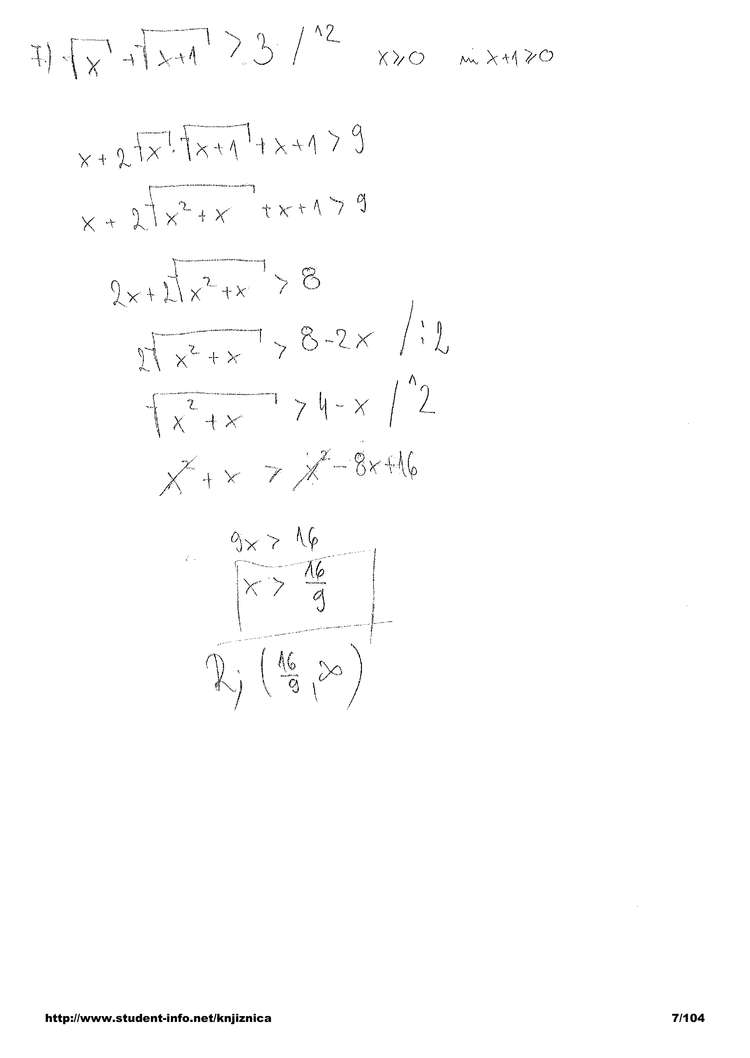 7.) √x + √(x+1) > 3 /^2 x⩾0 in x+1⩾0
x + 2√x · √(x+1) + x+1 > 9
x + 2√(x²+x) + x+1 > 9
2x + 2√(x²+x) > 8
2√(x²+x) > 8-2x /:2
√(x²+x) > 4-x /^2
x² + x > x² - 8x+16
9x > 16
x > 16/9
R; (16/9, ∞)
http://www.student-info.net/knjiznica 7/104